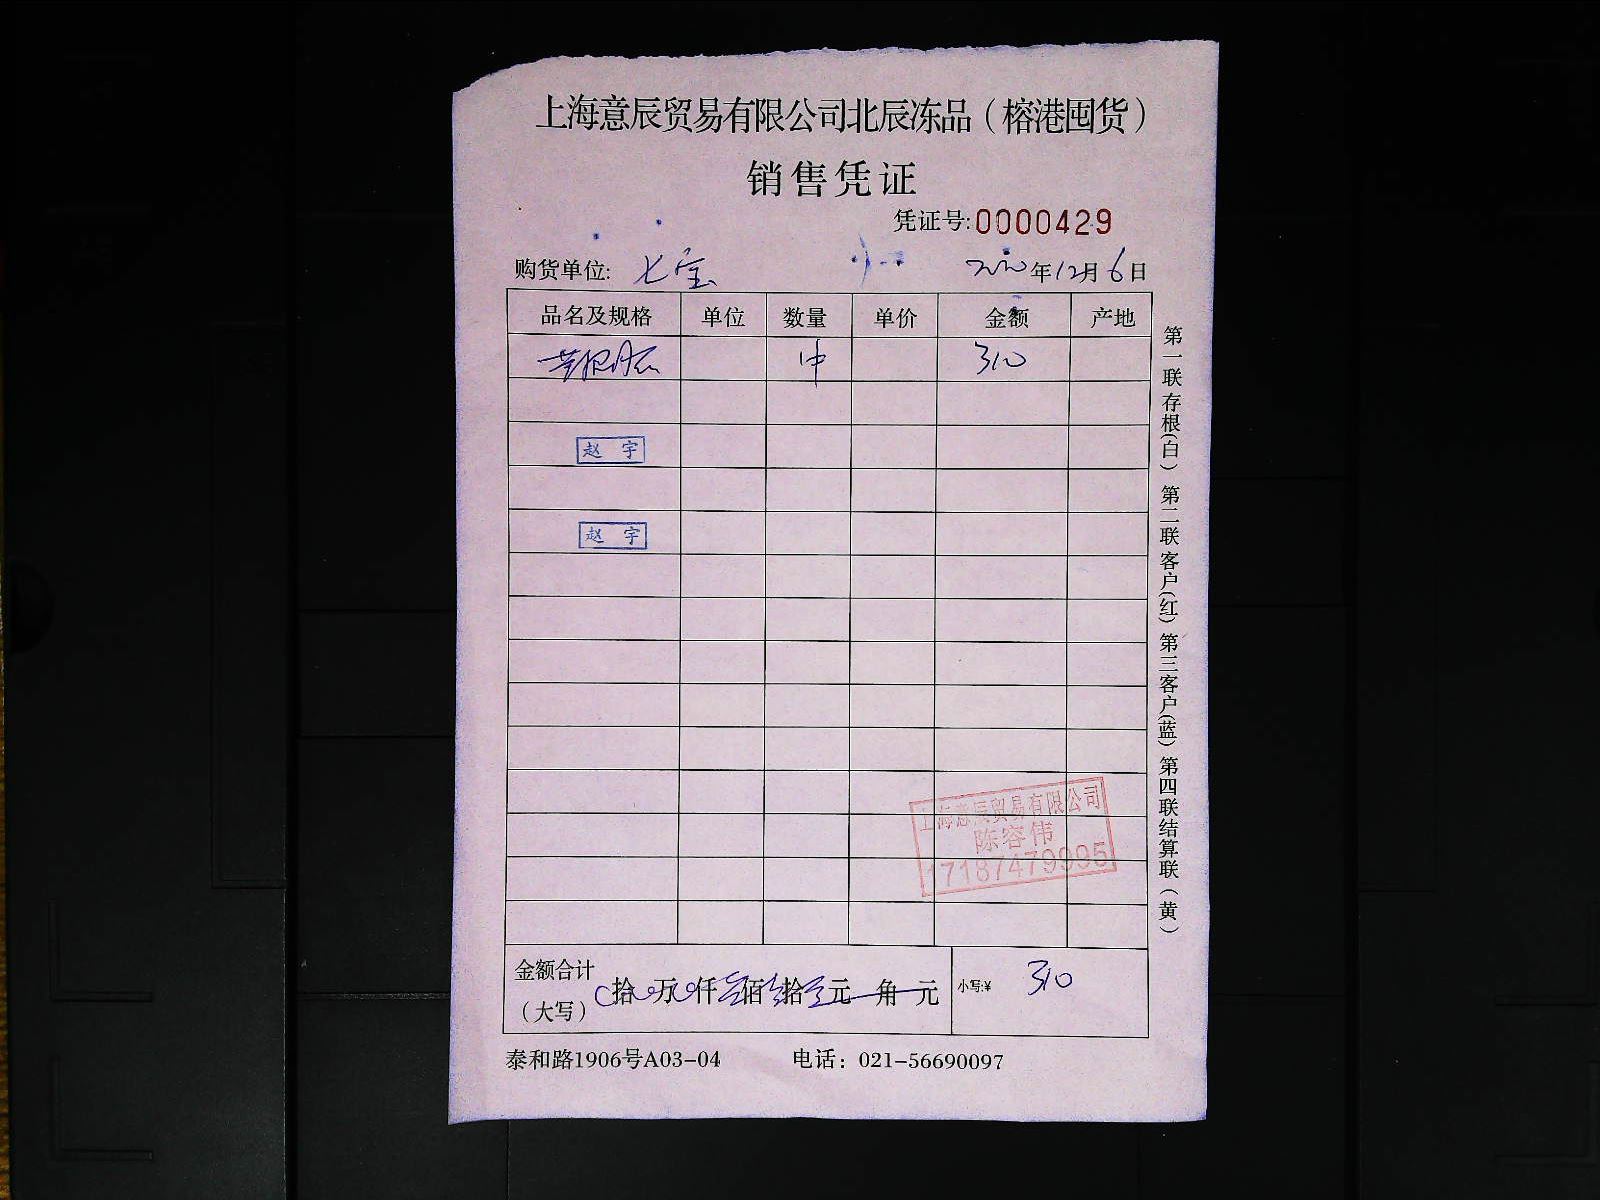 上海意辰贸易有限公司北辰冻品（榕港囤货）
销售凭证
凭证号:0000429
购货单位: 七宝 2020年12月6日
品名及规格 单位 数量 单价 金额 产地
310
赵 宇
赵 宇
上海意辰贸易有限公司
陈容伟
17187479995
金额合计（大写） 拾 万 仟 叁佰 拾 元 角 元 小写:¥ 310
泰和路1906号A03-04 电话：021-56690097
第一联存根(白) 第二联客户(红) 第三客户(蓝) 第四联结算联（黄）